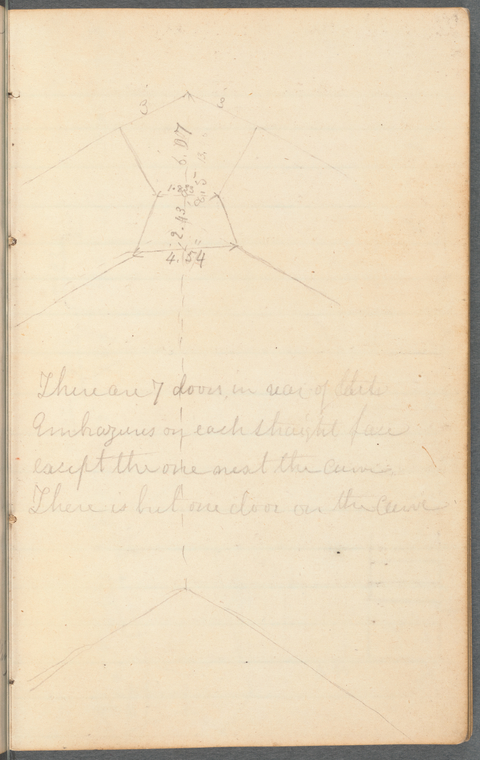 3 3
6.07
1.233
2.43
4.54
There are 7 doors, in rear of
Embrazures on each straight face
except the one next the curve.
There is but one door on the Curve